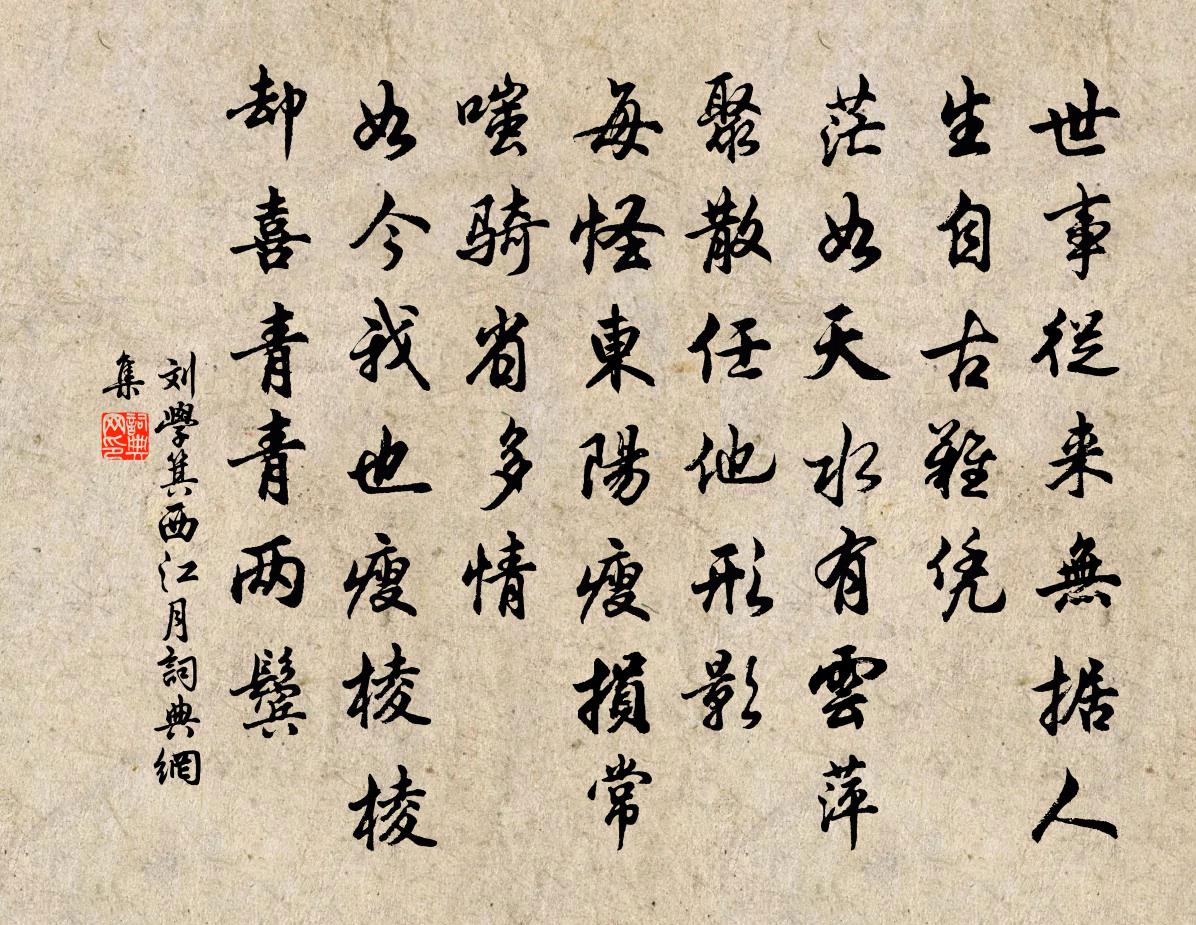 世事從来無據人
生自古難凭
茫如天水有雲萍
聚散任他形影
每怪東陽瘦損常
嗤騎省多情
如今我也瘦棱棱
却喜青青两鬓
刘學箕西江月詞典網
集
詞典
网印